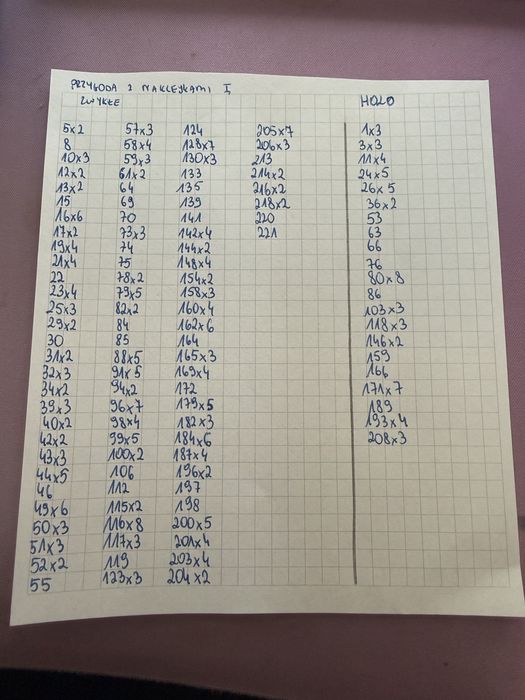 PRZYGODA Z NAKLEJKAMI I
ZWYKŁE
5x2
8
10x3
12x2
13x2
15
16x6
17x2
19x4
21x4
22
23x4
25x3
29x2
30
31x2
32x3
34x2
39x3
40x2
42x2
43x3
44x5
46
49x6
50x3
51x3
52x2
55
57x3
58x4
59x3
61x2
64
69
70
73x3
74
75
78x2
79x5
82x2
84
85
88x5
91x5
94x2
96x7
98x4
99x5
100x2
106
112
115x2
116x8
117x3
119
123x3
124
128x7
130x3
133
135
139
141
142x4
144x2
148x4
154x2
158x3
160x4
162x6
164
165x3
169x4
172
179x5
182x3
184x6
187x4
196x2
197
198
200x5
201x4
203x4
204x2
205x7
206x3
213
214x2
216x2
218x2
220
221
HOLO
1x3
3x3
11x4
24x5
26x5
36x2
53
63
66
76
80x8
86
103x3
118x3
146x2
159
166
171x7
189
193x4
208x3